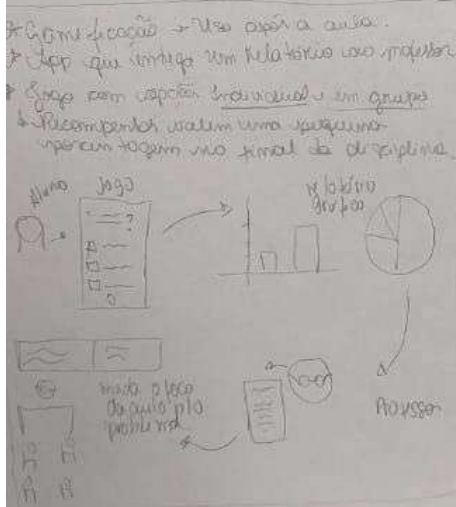 * Gamificação → Uso após a aula.
* App que entrega um relatório ao professor
* Jogo com opções individual e em grupo
* Recompensas valem uma pequena
porcentagem no final da disciplina.
Aluno
Jogo
?
relatório
gráfico
Professor
muda o foco
da aula p/ o
problema